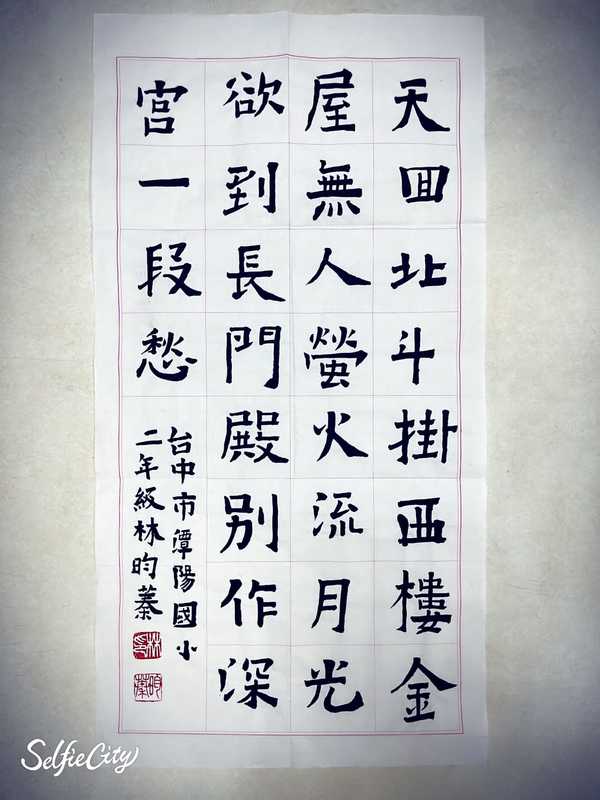 天回北斗掛西樓金
屋無人螢火流月光
欲到長門殿別作深
宮一段愁
台中市潭陽國小
二年級林昀蓁
SelfieCity